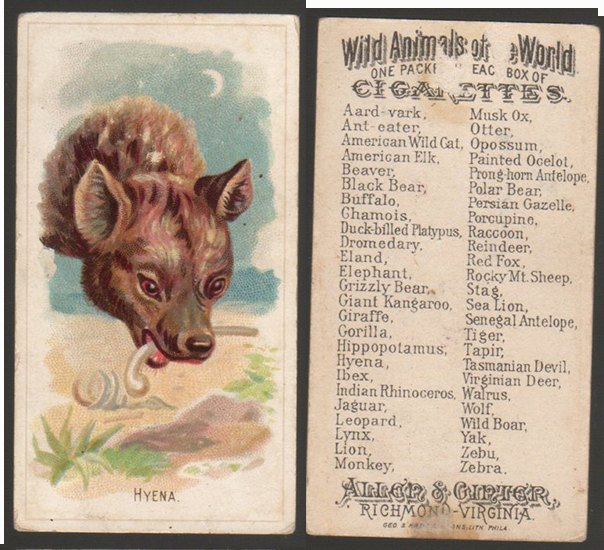 HYENA.
Wild Animals of World
ONE PACK EAC BOX OF
Aard-vark,
Ant-eater,
American Wild Cat,
American Elk,
Beaver,
Black Bear,
Buffalo,
Chamois,
Duck-billed Platypus,
Dromedary,
Eland,
Elephant,
Grizzly Bear,
Giant Kangaroo,
Giraffe,
Gorilla,
Hippopotamus,
Hyena,
Ibex,
Indian Rhinoceros,
Jaguar,
Leopard,
Lynx,
Lion,
Monkey,
Musk Ox,
Otter,
Opossum,
Painted Ocelot,
Prong-horn Antelope,
Polar Bear,
Persian Gazelle,
Porcupine,
Raccoon,
Reindeer,
Red Fox,
Rocky Mt. Sheep,
Stag,
Sea Lion,
Senegal Antelope,
Tiger,
Tapir,
Tasmanian Devil,
Virginian Deer,
Walrus,
Wolf,
Wild Boar,
Yak,
Zebu,
Zebra.
ALLEN & GINTER,
RICHMOND-VIRGINIA.
GEO S LITH PHILA